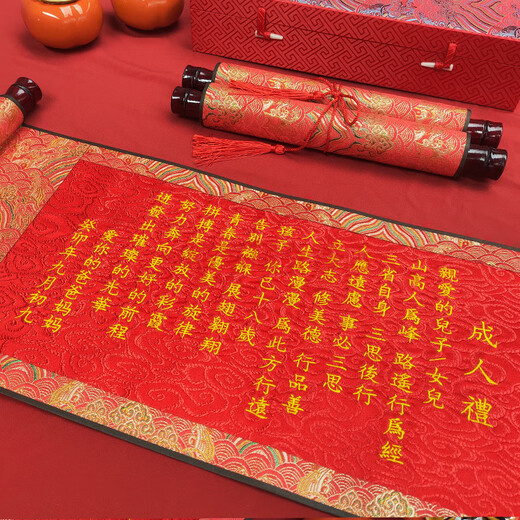 成人禮
親愛的兒子/女兒
山高人爲峰 路遙行爲經
三省自身 三思後行
人應遠慮 事必三思
立大志 修美德 行品善
人生路漫漫 爲此方行遠
孩子你已十八歲
告別襁褓 展翅翱翔
青春是優美的旋律
拼搏是綻放的彩霞
努力奔向更好的前程
迸發出璀璨的光華
愛你的爸爸媽媽
癸卯年九月初九